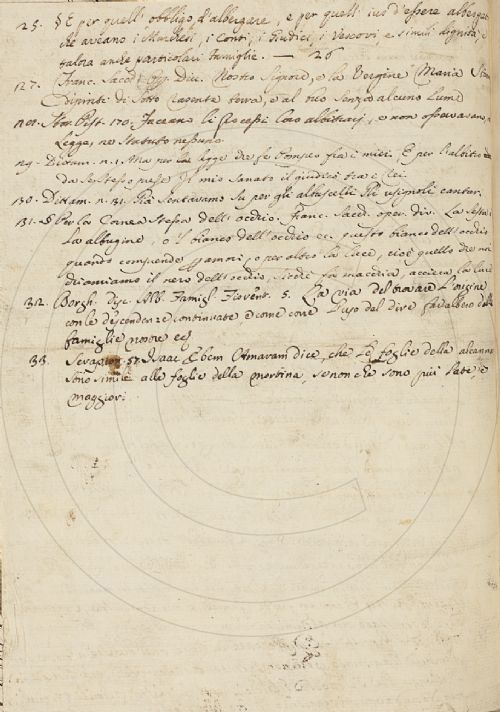 25. § E per quell' obbligo d'albergare, e per quell' ius d'essere albergati
che aveano i Marchesi, i Conti, i Giudici, i Vescovi e simili dignità, e
talora anche particolari famiglie. — 26
127. Franc. Sacch. Op. Div. Nostro Signore, e la Vergine Maria
dipinti di sotto carenta terra, e al buio senza alcuno lume
Stor. Pist. 170. Faceano li processi loro albitrarj, e non osservavano,
Legge, ne Statuto nessuno
129. Dittam. n. 1. Ma per la legge che fe Pompeo fra i miei. E per l'albitrio che
da se stesso prese Il mio sanato il giudicò tra e rei.
130. Dittam. n. 31. Già sentavamo su per gli albuscelli Gli usignoli cantar.
131. § Per la Cornea stessa dell' occhio. Franc. Sacch. oper. div. La sesta
La albugine, o il bianco dell' occhio ec. questo bianco dell' occhio
quando comprende amori, o per altro la luce, cioè quello che noi
chiamiamo il nero dell' occhio, si che fa macchia, accieca la luce
312. Borgh. Disc. Alb. Famigl. Fiorent. 5. La via del trovare l'origine
con le descendenze continuate e come corre l'uso del dire gli alberi delle
famiglie nostre ec.
33. Serapion. 57. Isaac Eben Amaram dice, che le foglie della alcanna
sono simile alle foglie della mortina, senonche sono più late, e
maggiori.